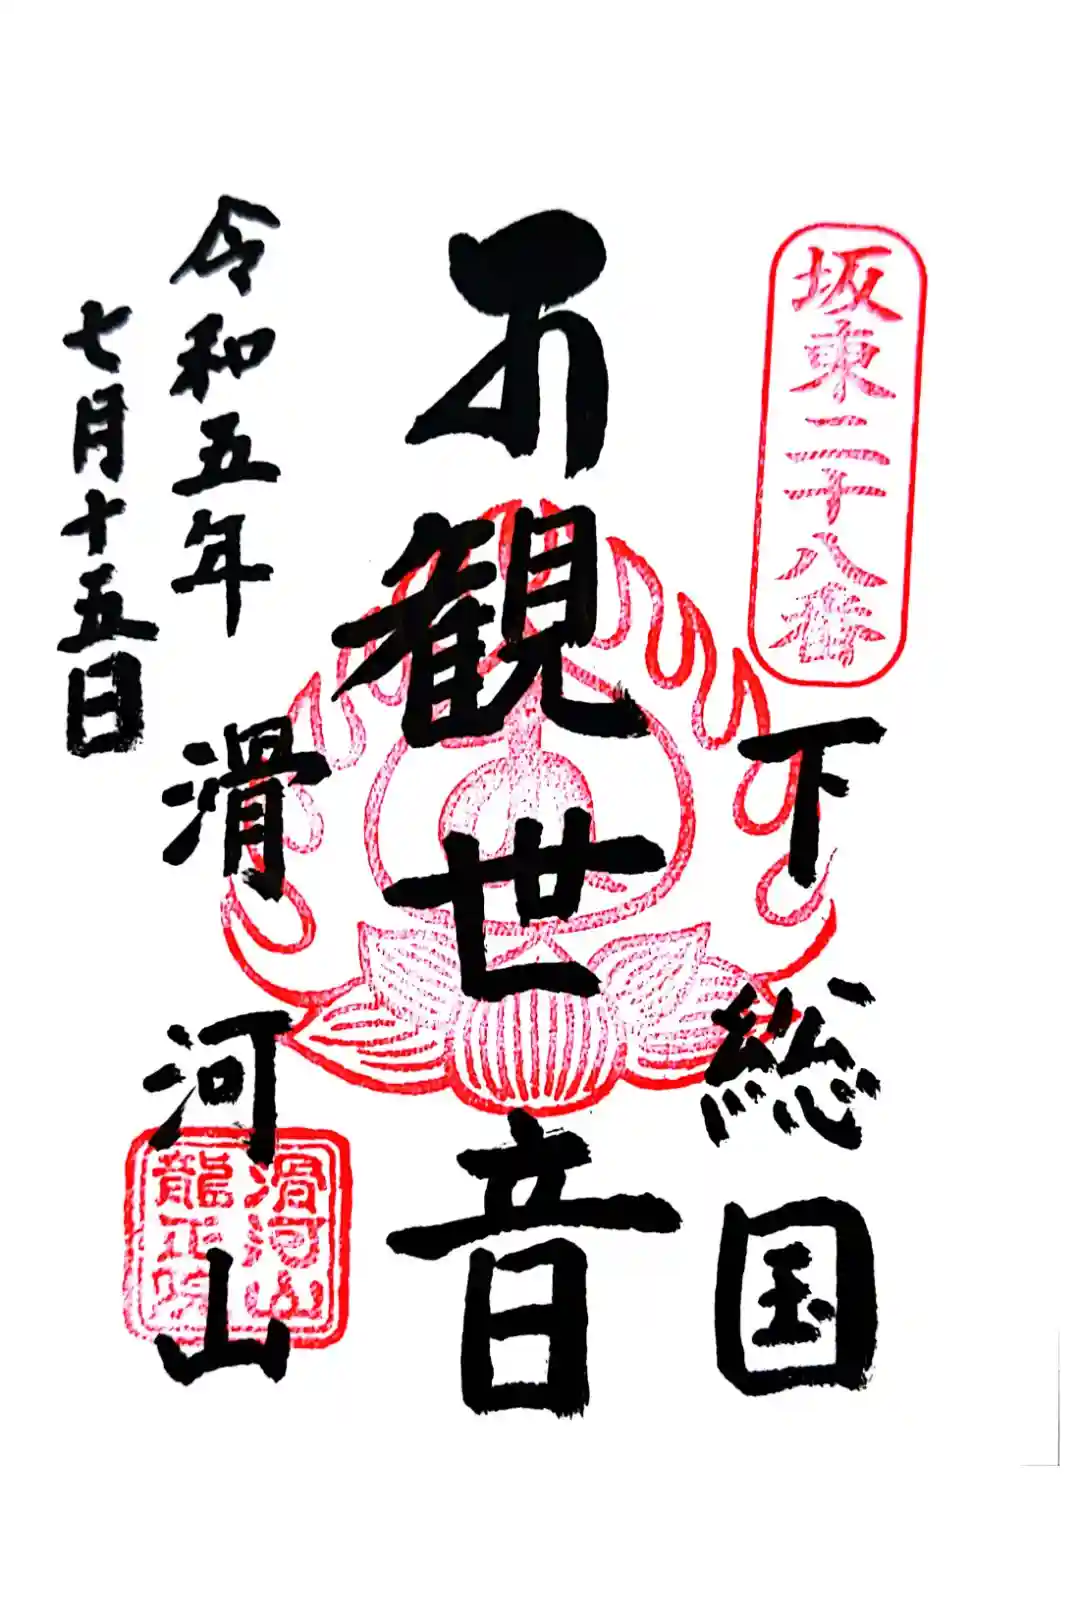 坂東二十八番
下総国
観世音
令和五年
滑河山
七月十五日
滑河山
龍正院